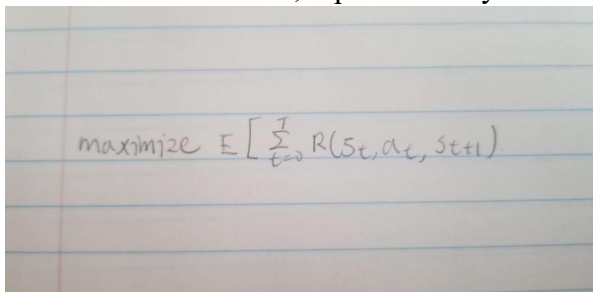 maximize E [ \sum_{t=0}^{T} R(S_t, a_t, S_{t+1})